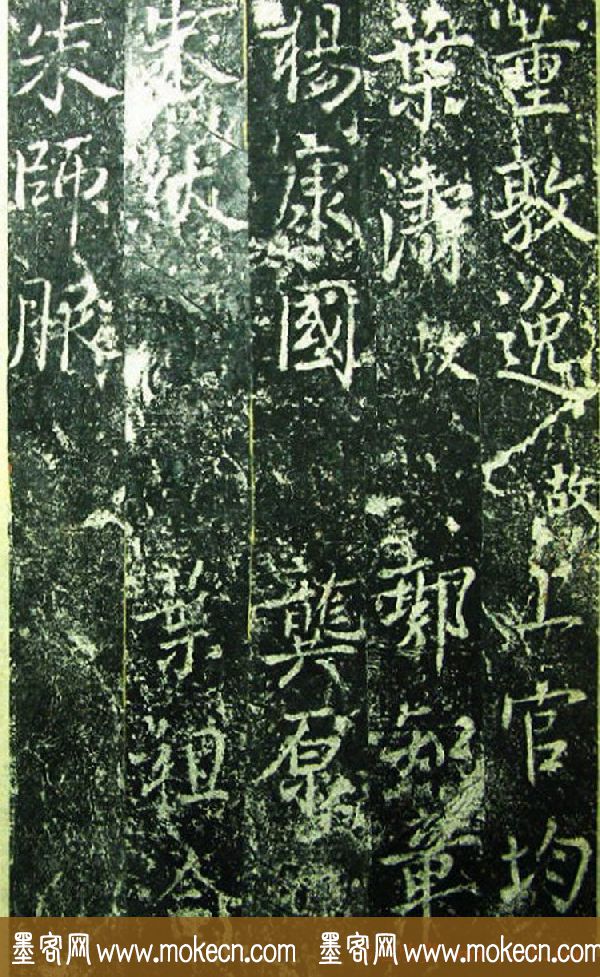 董敦逸 故 上官均
葉濤 故 郭知章
楊康國 龔原
朱紱 葉祖
朱師服
墨客网 www.mokecn.com 墨客网 www.mokecn.com